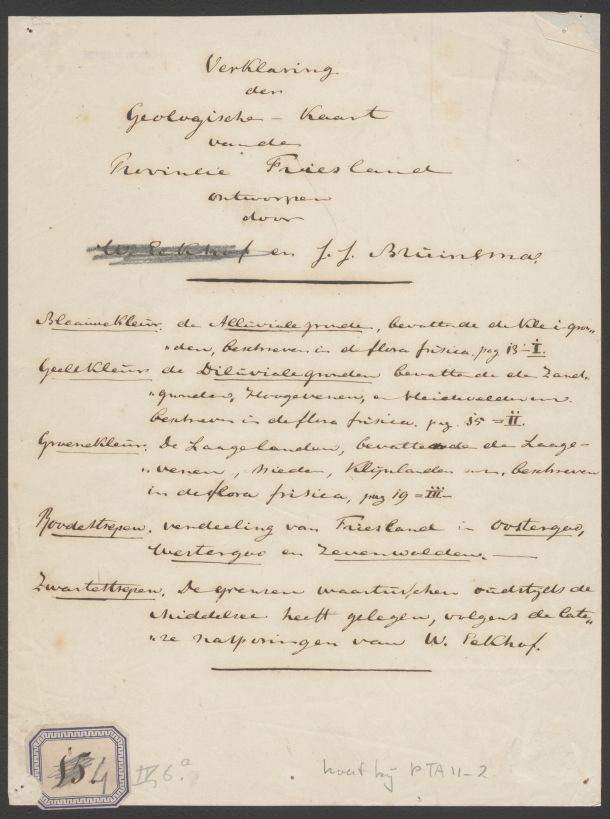 Verklaring
der
Geologische - Kaart
van de
Provincie Friesland
ontworpen
door
W. Eekhof en J. J. Bruinsma.
Blaauwe kleur. de Alluviale gronden, bevattende de Klei gron-
"den, beschreven in de flora frisica. pag 13 - I.
Geele Kleur de Diluviale gronden bevattende de Zand-
"gronden, Hoogevenen, en Heidevelden
beschreven in de flora frisica. pag. 15 = II.
Groene kleur. De Laage landen, bevattende de Laage-
"venen, Mieden, Klijnlanden enz. beschreven
in de flora frisica, pag 19 = III -
Roode strepen. verdeeling van Friesland in Oostergoo,
Westergoo en Zevenwolden. —
Zwarte strepen. De grenzen waartusschen oudstijds de
Middelzee heeft gelegen, volgens de late-
"re nasporingen van W. Eekhof.
154
IV, 6a.
hoort bij PTA 11-2